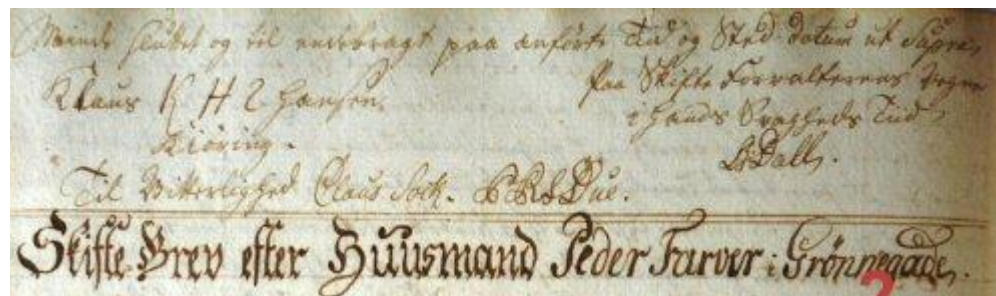 Minde sluttet og til endebragt paa anførte Tid og Sted. datum ut Supra,
Klaus K H S Hansen. Paa Skifte Forvalterens Vegne
Kiøring. i hands Svagheds Tiid
Dall.
Til Vitterlighed Claus
Due.
Skifte-Brev efter Huusmand Peder Farver i Grønnegade.